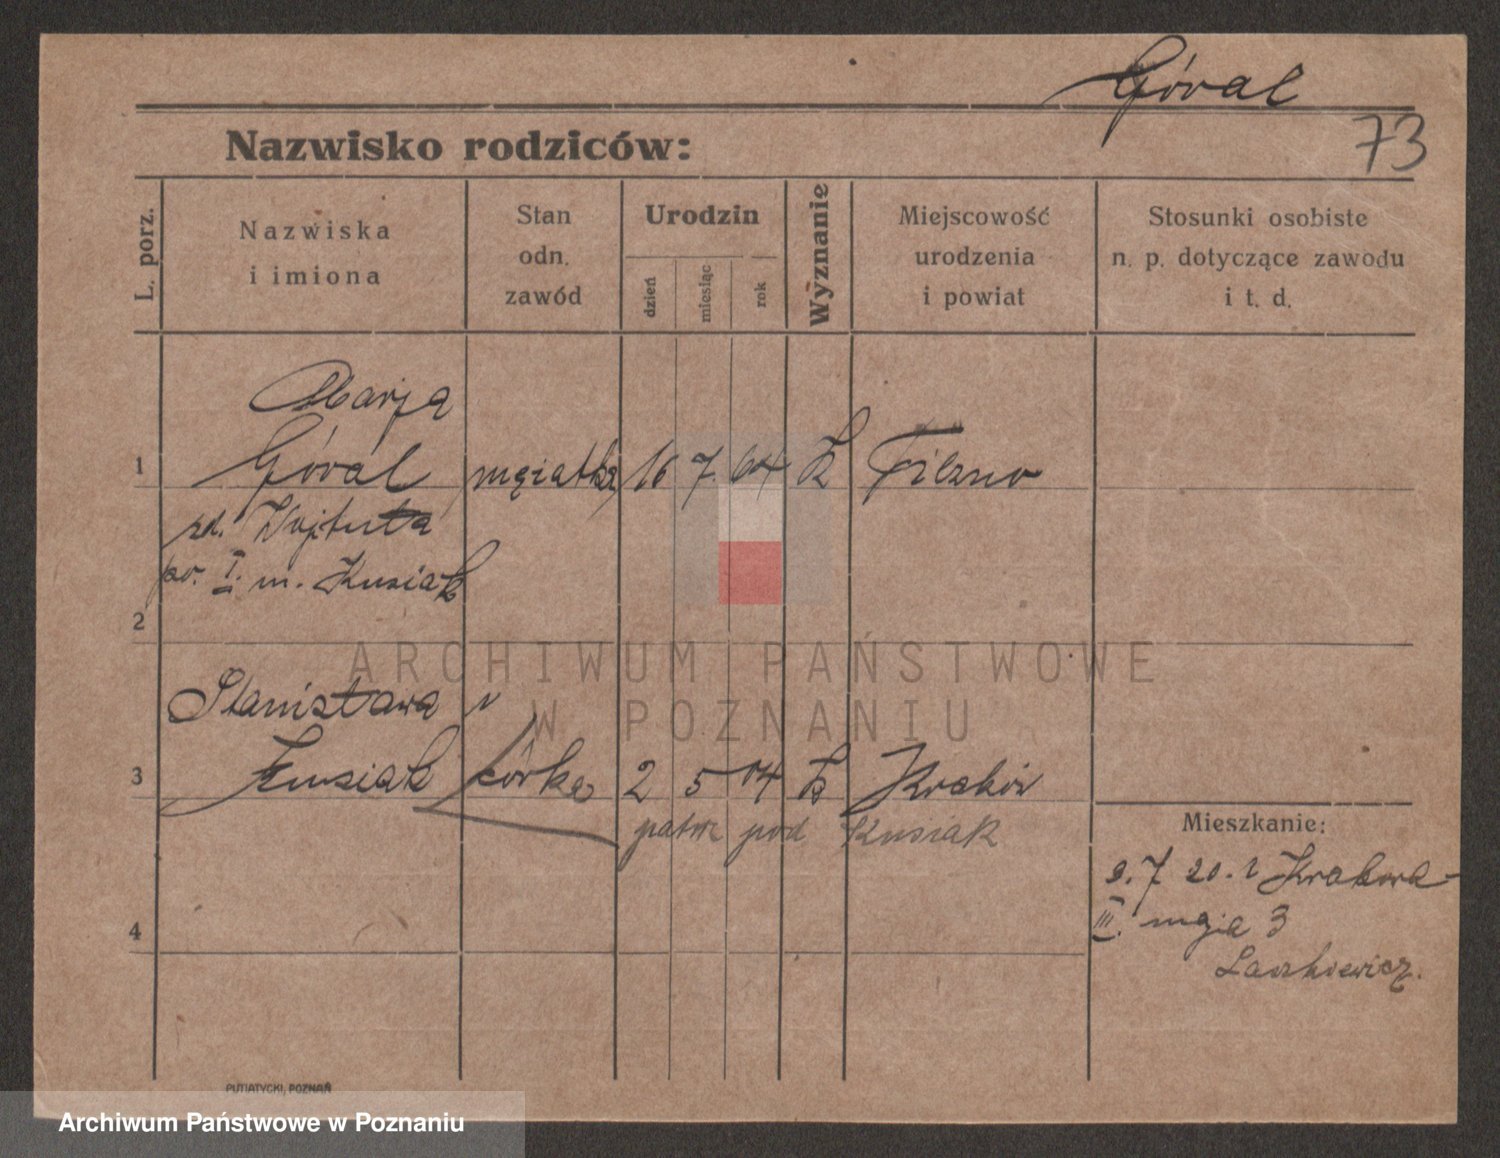 Góral
73
Nazwisko rodziców:
L. porz.
Nazwiska
i imiona
Stan
odn.
zawód
Urodzin
dzień
miesiąc
rok
Wyznanie
Miejscowość
urodzenia
i powiat
Stosunki osobiste
n. p. dotyczące zawodu
i t. d.
Marja
1 Góral mężatka 16 7. 64 K Pilzno
zd. Wojtuta
I. m. Kusiak
2
Stanisława
3 Kusiak córka 2 5 04 K Kraków
patrz pod Kusiak
Mieszkanie:
2. 7 20. Krakowa-
III. 3
4
Laszkiewicz.
ARCHIWUM PAŃSTWOWE
W POZNANIU
PUTIATYCKI, POZNAŃ
Archiwum Państwowe w Poznaniu